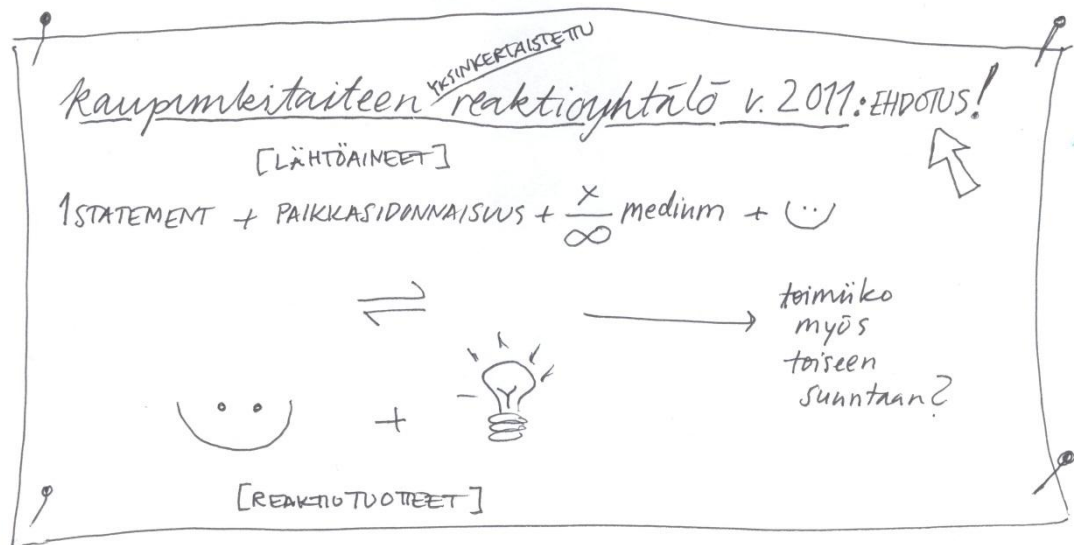 kaupunkitaiteen YKSINKERTAISTETTU reaktioyhtälö v. 2011: EHDOTUS!
[LÄHTÖAINEET]
1 STATEMENT + PAIKKASIDONNAISUUS + x/∞ medium +
+
toimiiko
myös
toiseen
suuntaan?
[REAKTIOTUOTTEET]